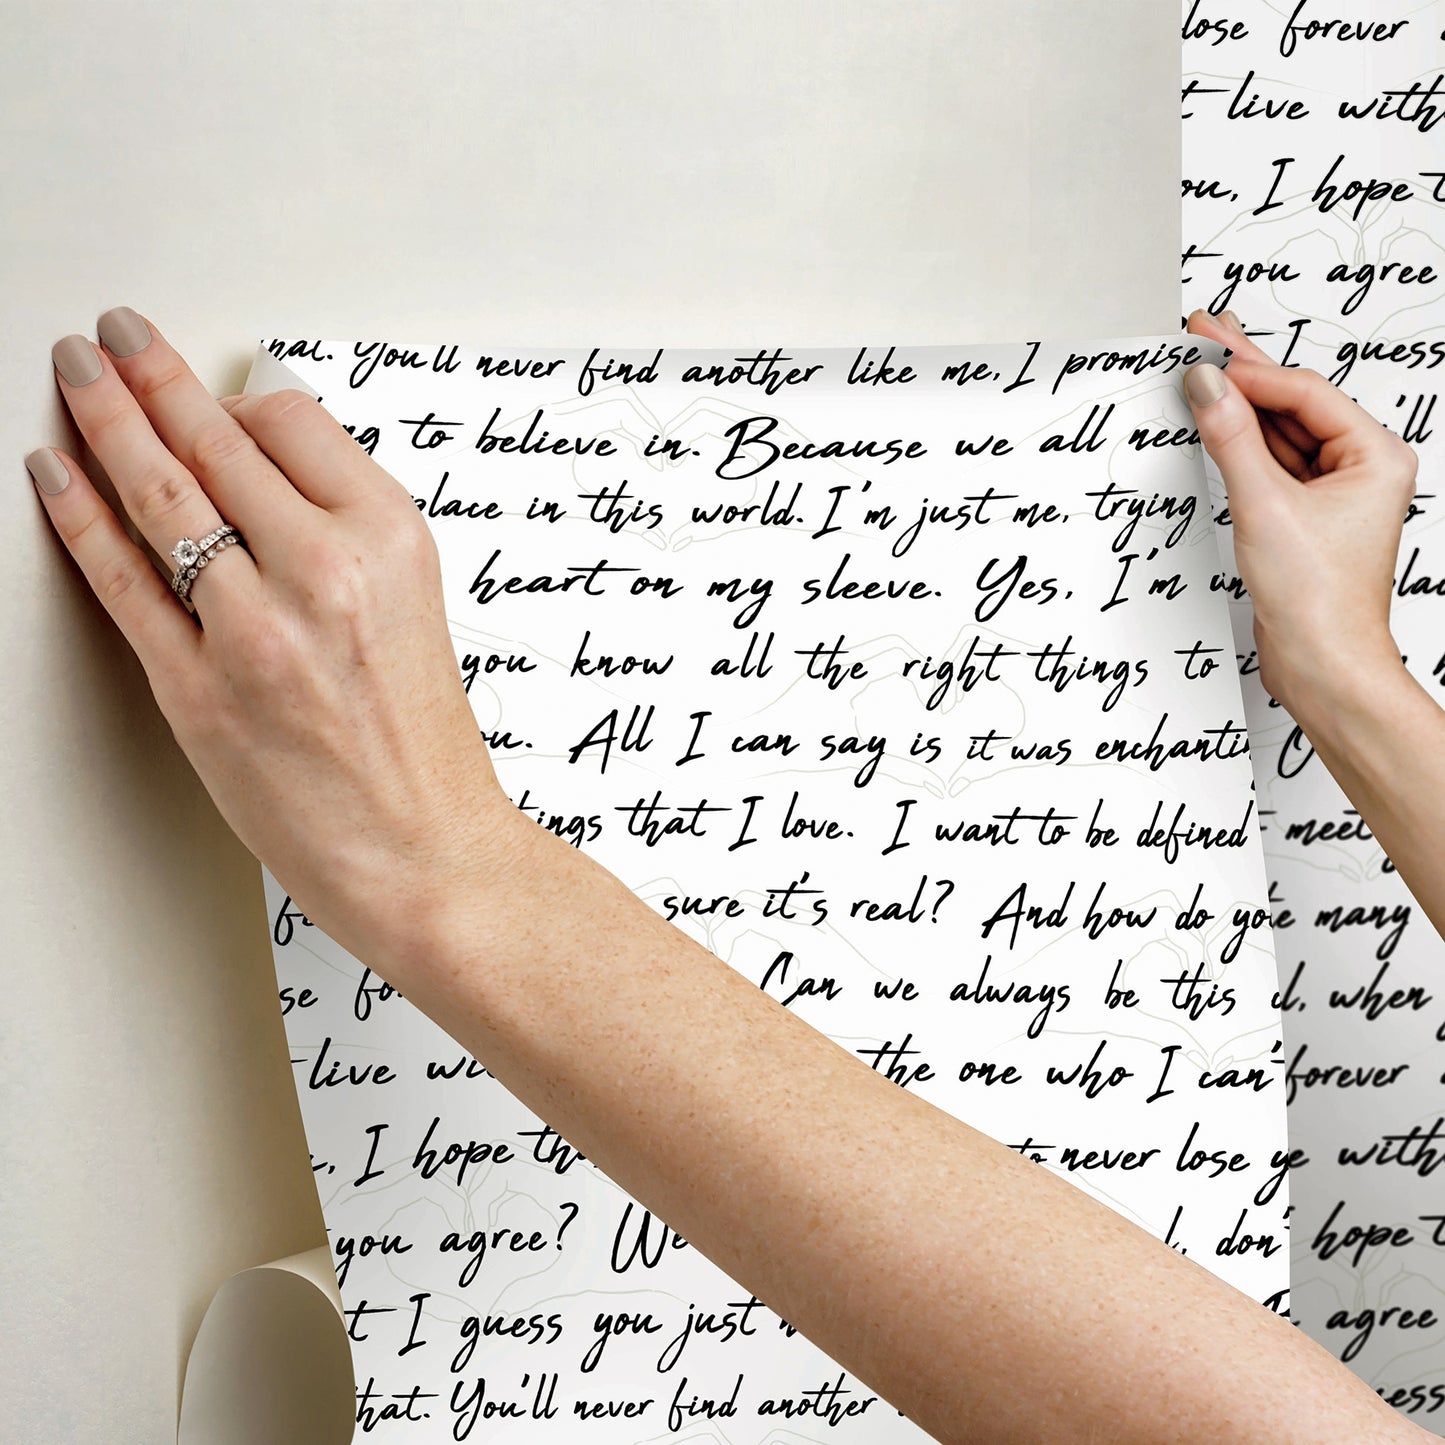 You'll never find another like me, I promise
to believe in. Because we all need
place in this world. I'm just me, trying
heart on my sleeve. Yes, I'm
you know all the right things to
All I can say is it was enchanting
things that I love. I want to be defined
sure it's real? And how do you
Can we always be this
live the one who I can'
I hope to never lose
you agree? We don'
I guess you just
that. You'll never find another
lose forever
live with
I hope
you agree
I guess
'll
meet
many
when
forever
with
hope
agree